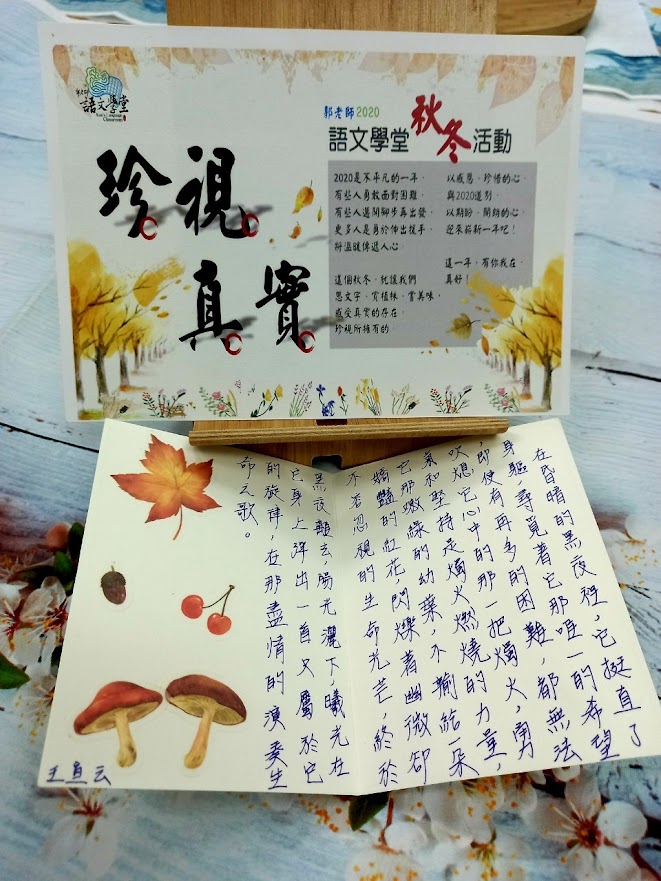 語文學堂
Kuo's Language
Classroom
珍視
真實
郭老師2020
語文學堂 秋冬 活動
2020是不平凡的一年，
有些人勇敢面對困難，
有些人邁開腳步再出發，
更多人是勇於伸出援手，
將溫暖傳遞人心。
這個秋冬，就讓我們
思文字，賞植栽，嘗美味，
感受真實的存在，
珍視所擁有的。
以感恩、珍惜的心，
與2020道別，
以期盼、開朗的心，
迎來嶄新一年吧！
這一年，有你我在，
真好！
在昏暗的黑夜裡，它挺直了
身軀，尋覓著它那唯一的希望
，即使有再多的困難，都無法
吹熄它心中的那一把燭火，勇
氣和堅持是燭火燃燒的力量，
它那嫩綠的幼葉，不輸給一朵
嬌豔的紅花，閃爍著幽微卻
不容忽視的生命光芒，終於
黑夜離去，陽光灑下曦光在
它身上譯出一首又屬於它
的旋律，在那盡情的演奏生
命之歌。